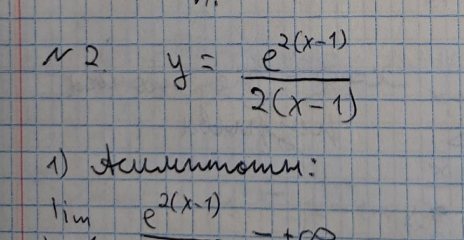 N 2 y = e^{2(x-1)} / 2(x-1)
1) Асимптоты:
lim e^{2(x-1)} = +∞